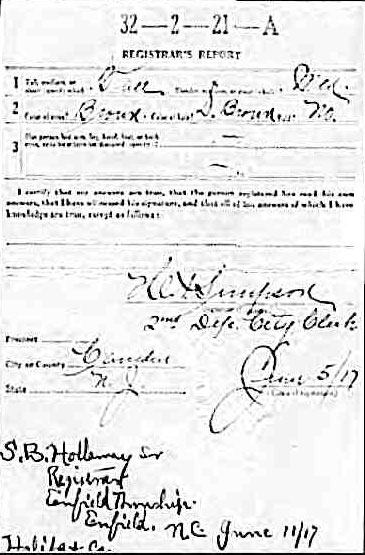 32—2—21—A
REGISTRAR'S REPORT
1 Tall, medium, or short (specify which)? Tall Slender, medium, or stout (which)? Med.
2 Color of eyes? Brown Color of hair? D. Brown Bald? No.
3 Has person lost arm, leg, hand, foot, or both
—
—
I certify that my answers are true, that the person registered has read his own
answers, that I have witnessed his signature, and that all of his answers of which I have
knowledge are true, except as follows:
Simpson
2nd Dep. City Clerk
Precinct
City or County Camden
State N.J. June 5/17
(Date of registration)
S.B. Holloway Sr
Registrar
Enfield Township.
Enfield, NC June 11/17
Halifax Co.